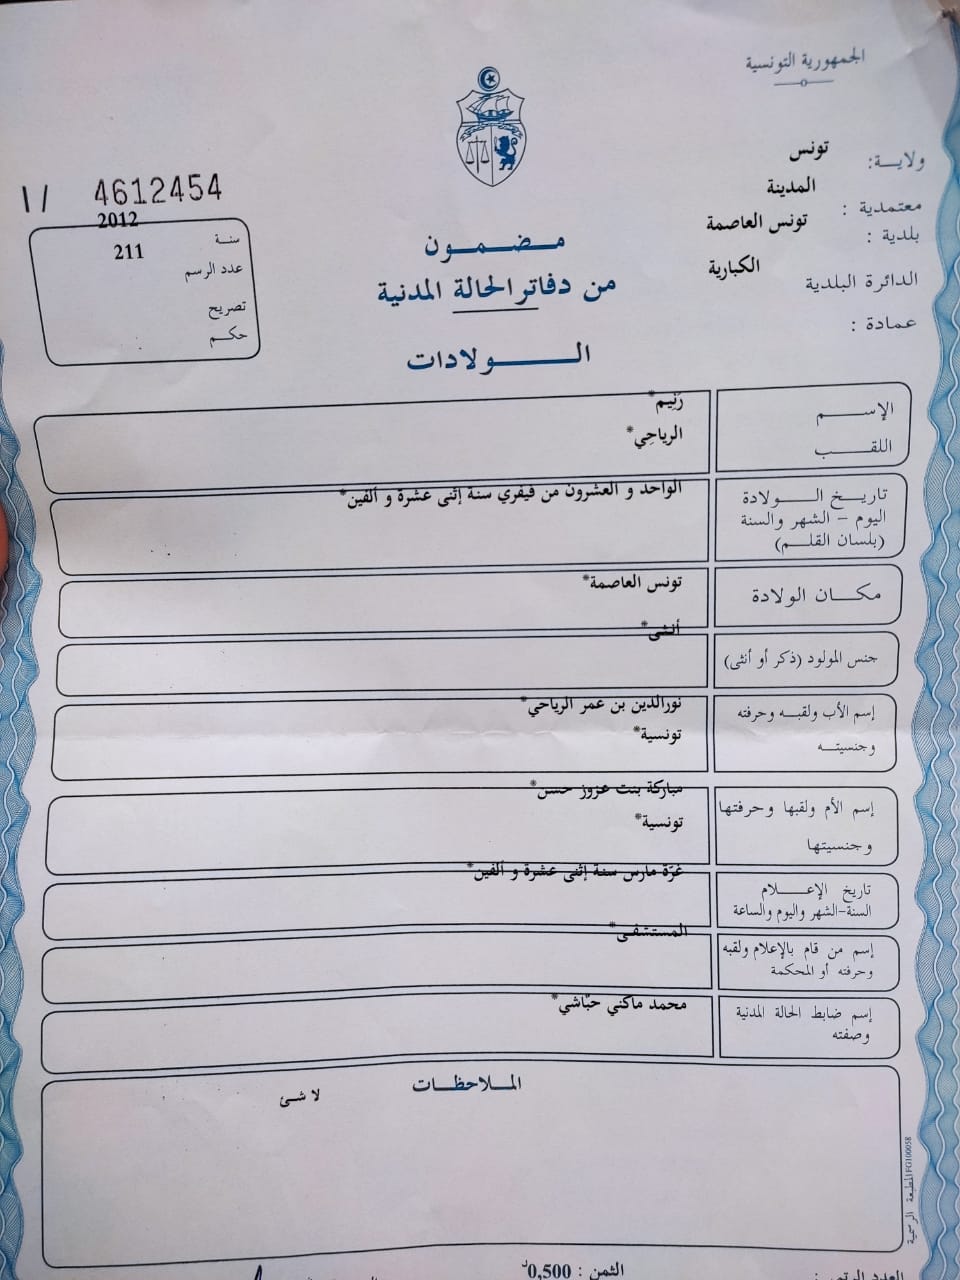 الجمهورية التونسية
ولاية: تونس
معتمدية : المدينة
بلدية : تونس العاصمة
الدائرة البلدية الكبارية
عمادة :
I/ 4612454
سنة 2012
عدد الرسم 211
تصريح
حكم :
مضمون
من دفاتر الحالة المدنية
الولادات
الإسم رَنِيم*
اللقب الرياحِي*
تاريخ الولادة
اليوم - الشهر والسنة
(بلسان القلم)
الواحد و العشرون من فيفري سنة إثنى عشرة و ألفين*
مكان الولادة تونس العاصمة*
جنس المولود (ذكر أو أنثى) أنثى*
إسم الأب ولقبه وحرفته نورالدين بن عمر الرياحي*
وجنسيته تونسية*
إسم الأم ولقبها وحرفتها مباركة بنت عزوز حسن*
وجنسيتها تونسية*
تاريخ الإعلام غرّة مارس سنة إثنى عشرة و ألفين*
السنة-الشهر واليوم والساعة
إسم من قام بالإعلام ولقبه المستشفى*
وحرفته أو المحكمة
إسم ضابط الحالة المدنية محمد ماكني حبّاشي*
وصفته
الملاحظات
لا شئ
المطبعة الرسمية FG100058
الثمن : 0,500د